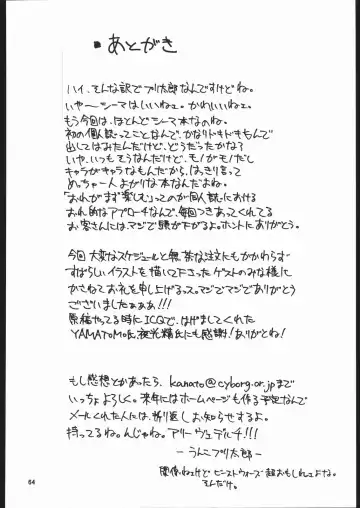 ・あとがき
ハイ、そんな訳でプリ太郎なんですけどね。
いや〜シーマはいいねェ。かわいいねェ。
もう今回は、ほとんどシーマ本なのね。
初の個人誌ってことなんで、かなりドキドキもんで
出してはみたんだけど、どうだったかな?
いや、いつもそうなんだけど、モノがモノだし
キャラがキャラなもんだから、はっきりって
めっちゃ一人よがりな本なんだよね。
「おれがまず楽しむ」ってのが同人誌における
おれ的なアプローチなんで、毎回つきあってくれてる
お客さんには、マジで頭が下がるよ。ホントにありがとう。
今回 大変なスケジュールと無茶な注文にもかかわらず
すばらしいイラストを描いて下さった ゲストのみな様に
かさねてお礼を申し上げるっス。マジでマジでありがとう
ございましたぁぁぁ!!!
原稿やってる時にICQで、はげましてくれた
YAMATOMO氏、夜光精氏にも感謝!ありがとね!
もし感想とかあったら、kanato@cyborg.or.jpまで
いっちょよろしく。来年にはホームページも作る予定なんで
メールくれた人には、折り返しお知らせするよ。
待ってるね。んじゃね。アリーヴェデルチ!!!
ーうんこプリ太郎ー
関係ねェけど ビーストウォーズ 超おもしれェよな。
そんだけ。
64